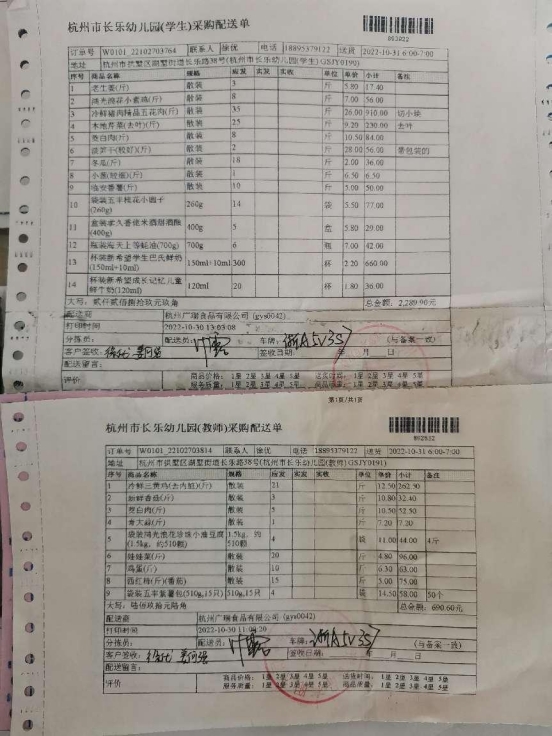 杭州市长乐幼儿园(学生)采购配送单
892922
订单号 W0101_22102703764 联系人 徐优 电话 18895379122 送货 2022-10-31 6:00-7:00
地址 杭州市拱墅区湖墅街道长乐路38号(杭州市长乐幼儿园(学生)GSJY0190)
序号 商品名称 规格 应发 实发 实收 单位 单价 小计 备注
1 老生姜(斤) 散装 3 斤 5.80 17.40
2 鸿光浪花小素鸡(斤) 散装 8 斤 7.00 56.00
3 冷鲜猪肉精品五花肉(斤) 散装 35 斤 26.00 910.00 切小块
4 本地芹菜(去叶)(斤) 散装 25 斤 9.20 230.00 去叶
5 茭白肉(斤) 散装 8 斤 10.50 84.00
6 散装 2 斤 28.00 56.00 要包装的
7 冬瓜(斤) 散装 18 斤 2.00 36.00
8 小葱(斤) 散装 1 斤 6.50 6.50
9 临安番薯(斤) 散装 10 斤 5.00 50.00
10 袋装五丰桂花小圆子(260g) 260g 14 袋 5.50 77.00
11 盒装孝久善佬米酒甜酒酿(400g) 400g 5 盒 5.80 29.00
12 瓶装海天上等蚝油(700g) 700g 6 瓶 7.00 42.00
13 杯装新希望学生巴氏鲜奶(150ml+10ml) 150ml+10ml 300 杯 2.20 660.00
14 杯装新希望成长记忆儿童鲜牛奶(120ml) 120ml 20 杯 1.80 36.00
大写：贰仟贰佰捌拾玖元玖角 总金额：2,289.90元
配送商 杭州广瑞食品有限公司 (gys0042)
打印时间 2022-10-30 13:03:08
分拣员： 配送员： 车牌：浙A5V3S7 (与备案一致)
客户签收： 签收日期： 年 月 日
配送留言：
评价 商品价格： 1星 2星 3星 4星 5星 送货时间： 1星 2星 3星 4星 5星
服务质量： 1星 2星 3星 4星 5星 商品质量： 1星 2星 3星 4星 5星
第1页/共1页
杭州市长乐幼儿园(教师)采购配送单
892832
订单号 W0101_22102703814 联系人 徐优 电话 18895379122 送货 2022-10-31 6:00-7:00
地址 杭州市拱墅区湖墅街道长乐路38号(杭州市长乐幼儿园(教师)GSJY0191)
序号 商品名称 规格 应发 实发 实收 单位 单价 小计 备注
1 冷鲜三黄鸡(去内脏)(斤) 散装 21 斤 12.50 262.50
2 新鲜香菇(斤) 散装 3 斤 10.80 32.40
3 茭白肉(斤) 散装 5 斤 10.50 52.50
4 散装 1 斤 7.20 7.20
5 袋装鸿光浪花珍珠小油豆腐(1.5kg，约510颗) 1.5kg，约510颗 4 袋 11.00 44.00 4斤
6 娃娃菜(斤) 散装 20 斤 4.80 96.00
7 鸡蛋(斤) 散装 10 斤 6.30 63.00
8 西红柿(斤)(番茄) 散装 15 斤 5.00 75.00
9 袋装五丰紫薯包(510g,15只) 510g,15只 4 袋 14.50 58.00 50个
大写：陆佰玖拾元陆角 总金额：690.60元
配送商 杭州广瑞食品有限公司 (gys0042)
打印时间
分拣员： 配送员： 车牌：浙A5V3S7 (与备案一致)
客户签收： 签收日期： 年 月 日
配送留言：
评价 商品价格： 1星 2星 3星 4星 5星 送货时间： 1星 2星 3星 4星 5星
服务质量： 1星 2星 3星 4星 5星 商品质量： 1星 2星 3星 4星 5星